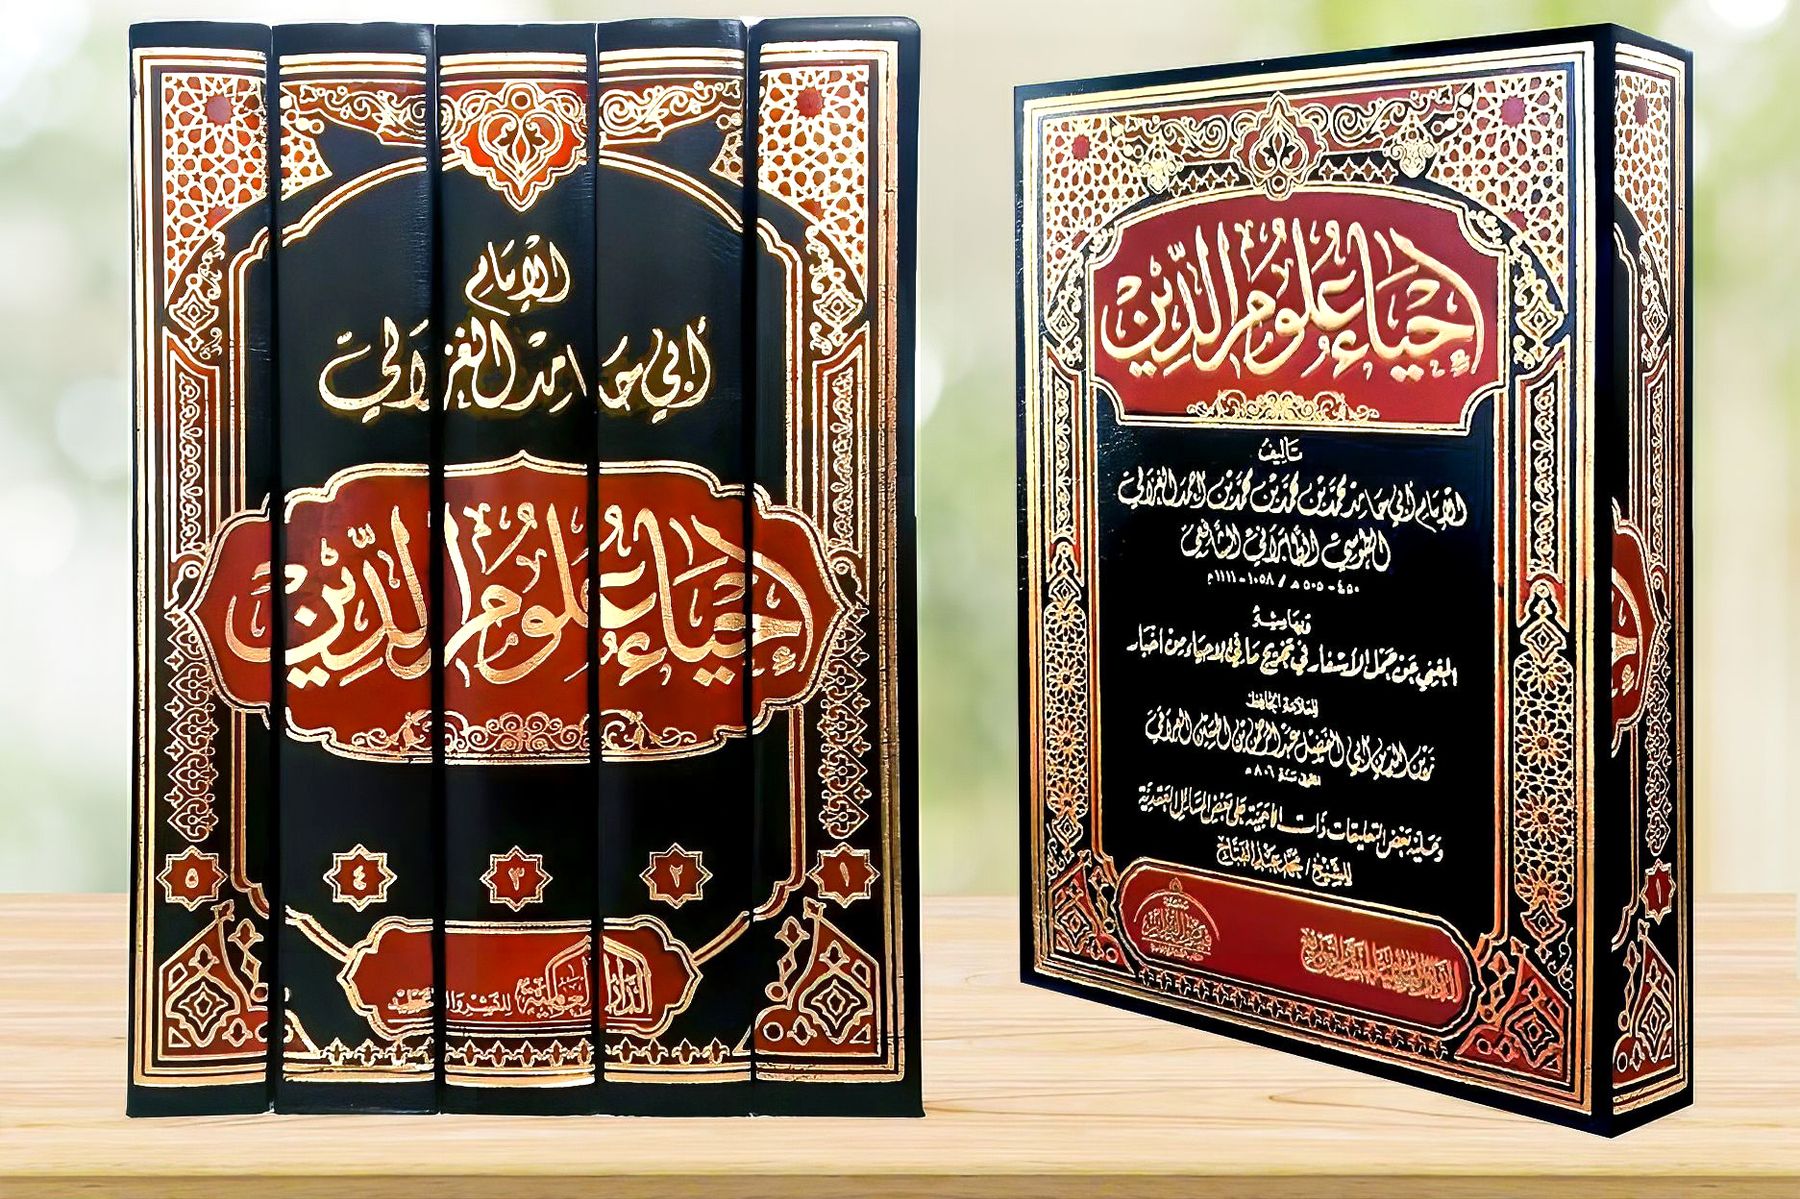 الإمام
أبي حامد الغزالي
إحياء علوم الدين
١
٢
٣
٤
٥
الدار العالمية للنشر والتجليد
إحياء علوم الدين
تأليف
الإمام أبي حامد محمد بن محمد بن محمد بن أحمد الغزالي
الطوسي الطابراني الشافعي
٤٥٠ - ٥٠٥ هـ / ١٠٥٨ - ١١١١ م
وبهامشه
المغني عن حمل الأسفار في تخريج ما في الإحياء من أخبار
للعلامة الحافظ
زين الدين أبي الفضل عبد الرحمن بن الحسين العراقي
المتوفى سنة ٨٠٦ هـ
وعليه بعض التعليقات ذات الأهمية على بعض المسائل العقدية
للشيخ / محمد عبد الفتاح
١